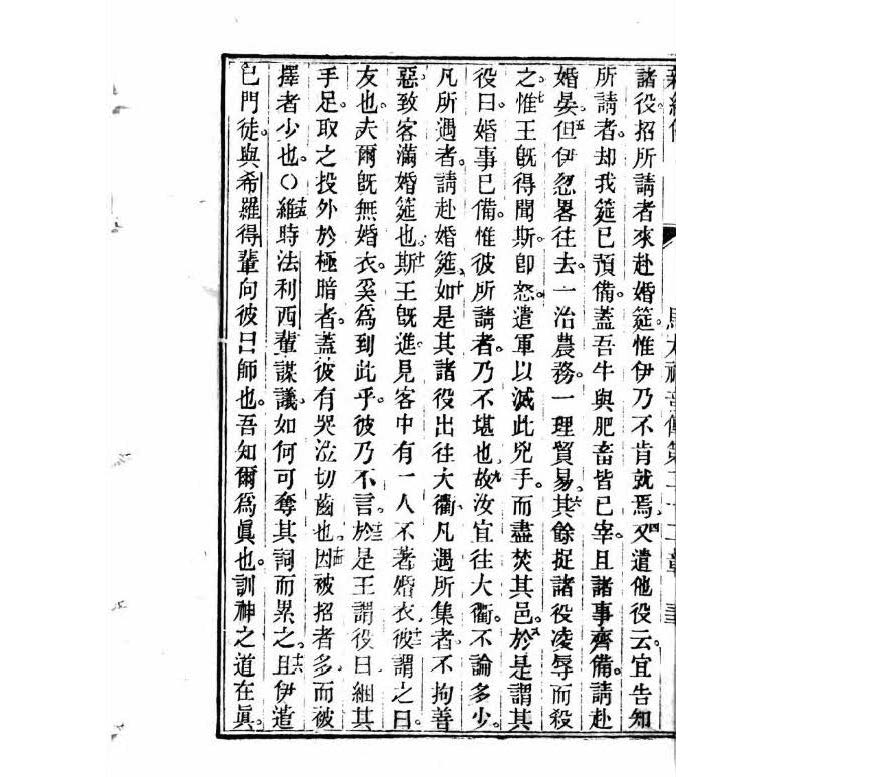 馬太福音傳第二十二章
諸役招所請者來赴婚筵。惟伊乃不肯就焉。四又遣他役云。宜告知
所請者。却我筵已預備。蓋吾牛與肥畜皆已宰。且諸事齊備。請赴
婚晏。五但伊忽畧往去。一治農務。一理貿易。六其餘捉諸役凌辱而殺
之。七惟王旣得聞斯。卽怒。遣軍以滅此兇手。而盡焚其邑。八於是謂其
役曰婚事已備。惟彼所請者。乃不堪也。九故汝宜往大衢。不論多少。
凡所遇者。請赴婚筵。十如是其諸役出往大衢。凡遇所集者。不拘善
惡。致客滿婚筵也。十一斯王旣進。見客中有一人不著婚衣。十二彼謂之曰。
友也。夫爾旣無婚衣。奚爲到此乎。彼乃不言。十三於是王謂役曰綑其
手足。取之投外於極暗者。蓋彼有哭泣切齒也。十四因被招者多。而被
擇者少也。〇十五維時法利西輩謀議。如何可奪其詞而累之。十六且伊遣
己門徒。與希羅得輩向彼曰師也。吾知爾爲眞也。訓神之道在眞。